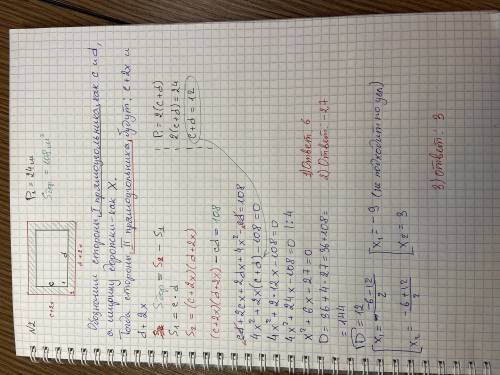 N2
c+2x
c
d
x
d+2x
P₁ = 24 м
Sдор = 108 м²
Обозначим стороны I прямоугольника, как c и d,
а ширину дорожки - как X.
Тогда стороны II прямоугольника, будут: c+2x и
d+2x
Sдор = S₂ - S₁
S₁ = c·d
S₂ = (c+2x)(d+2x)
(c+2x)(d+2x) - cd = 108
cd + 2cx + 2dx + 4x² - cd = 108
4x² + 2x(c+d) - 108 = 0
4x² + 2·12x - 108 = 0
4x² + 24x - 108 = 0 |:4
x² + 6x - 27 = 0
D = 36 + 4·27 = 36 + 108 =
= 144
√D = 12
x₁ = (-6-12)/2
x₂ = (-6+12)/2
x₁ = -9 (не подходит по усл)
x₂ = 3
P₁ = 2(c+d)
2(c+d) = 24
c+d = 12
1) Ответ: 6
2) Ответ: -27
3) Ответ: 3